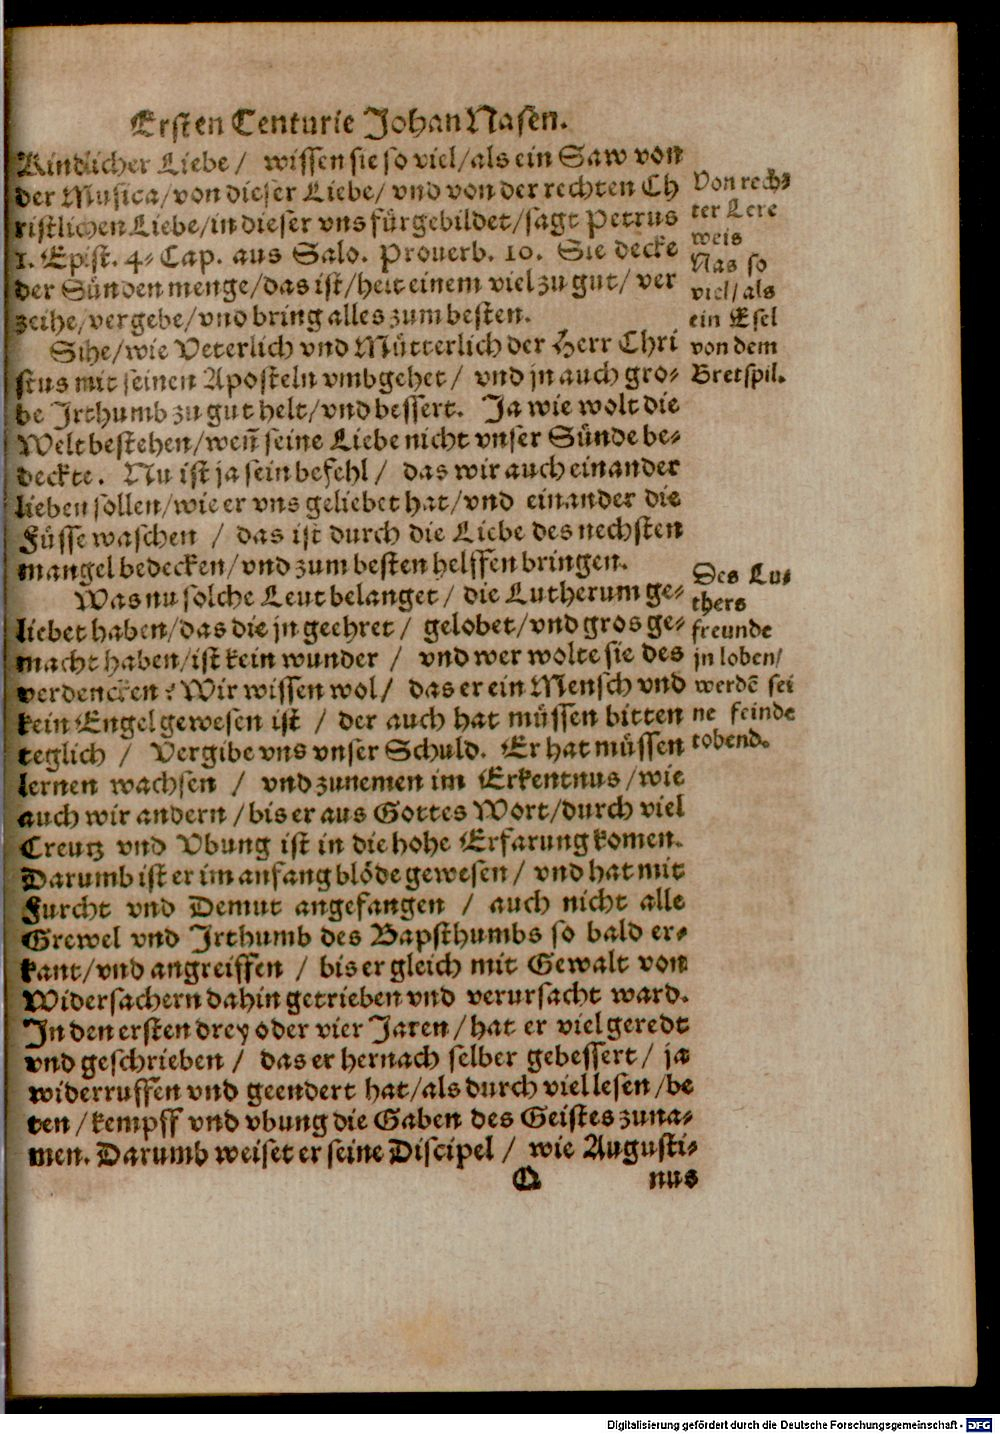 Ersten Centurie Johan Nasen.
Kindlicher Liebe / wissen sie so viel / als ein Saw von
der Musica / von dieser Liebe / vnd von der rechten Ch
ristlichen Liebe / in dieser vns fürgebildet / sagt Petrus
1. Epist. 4. Cap. aus Salo. Prouerb. 10. Sie decke
der Sünden menge / das ist / helt einem viel zu gut / ver
zeihe / vergebe / vnd bring alles zum besten.
Sihe / wie Veterlich vnd Mütterlich der Herr Chri
stus mit seinen Aposteln vmbgehet / vnd jn auch gro-
be Jrthumb zu gut helt / vnd bessert. Ja wie wolt die
Welt bestehen / weñ seine Liebe nicht vnser Sünde be-
deckte. Nu ist ja sein befehl / das wir auch einander
lieben sollen / wie er vns geliebet hat / vnd einander die
Füsse waschen / das ist durch die Liebe des nechsten
mangel bedecken / vnd zum besten helffen bringen.
Was nu solche Leut belanget / die Lutherum ge-
liebet haben / das die jn geehret / gelobet / vnd gros ge-
macht haben / ist kein wunder / vnd wer wolte sie des
verdencken? Wir wissen wol / das er ein Mensch vnd
kein Engel gewesen ist / der auch hat müssen bitten
teglich / Vergibe vns vnser Schuld. Er hat müssen
lernen wachsen / vnd zunemen im Erkentnus / wie
auch wir andern / bis er aus Gottes Wort / durch viel
Creutz vnd Vbung ist in die hohe Erfarung komen.
Darumb ist er im anfang blöde gewesen / vnd hat mit
Furcht vnd Demut angefangen / auch nicht alle
Grewel vnd Jrthumb des Bapsthumbs so bald er-
kant / vnd angreiffen / bis er gleich mit Gewalt von
Widersachern dahin getrieben vnd verursacht ward.
Jn den ersten drey oder vier Jaren / hat er viel geredt
vnd geschrieben / das er hernach selber gebessert / ja
widerruffen vnd geendert hat / als durch viel lesen / be
ten / kempff vnd vbung die Gaben des Geistes zuna-
men. Darumb weiset er seine Discipel / wie Augusti-
Q nus
Von rech-
ter Lere
weis
Nas so
viel / als
ein Esel
von dem
Bretspil.
Des Lu-
thers
freunde
jn loben /
werdē sei
ne feinde
tobend.
Digitalisierung gefördert durch die Deutsche Forschungsgemeinschaft - DFG